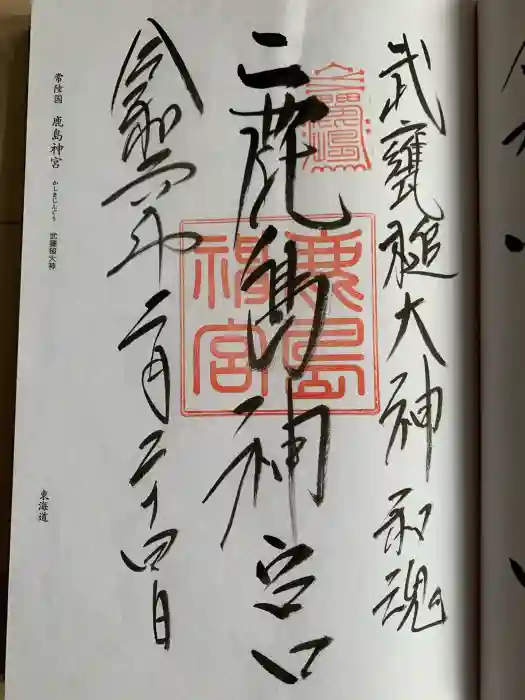 武甕槌大神 和魂
鹿島神宮
鹿島
神宮
令和六年二月二十四日
常陸国 鹿島神宮 かしまじんぐう 武甕槌大神
東海道